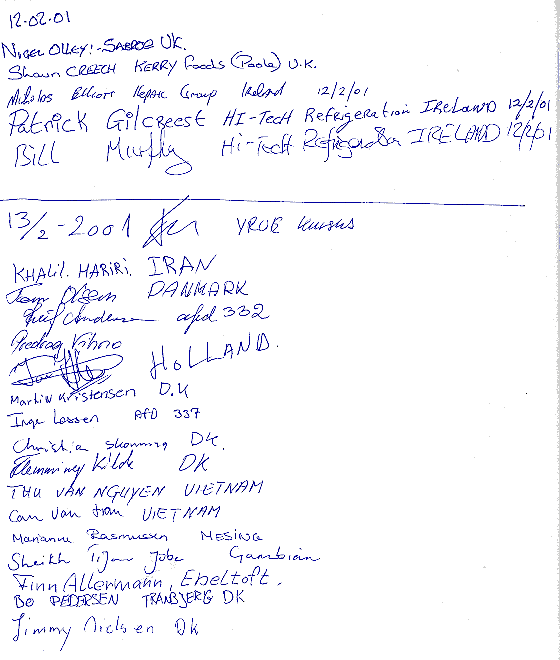 12.02.01
NIGEL OLLEY! - SABROE UK.
Shaun CREECH KERRY Foods (Poole) U.K.
Nikolas Elliott Group Ireland 12/2/01
Patrick Gilcreest HI-Tech Refrigeration IReLAND 12/2/01
Bill Murphy Hi-Tech Refrigeration IRELAND 12/2/01
13/2-2001 kursus
KHALIL. HARIRI. IRAN
Tom Olsen DANMARK
Leif Andersen afd 332
Predrag
HOLLAND.
Martin Kristensen D.K
Inge Lassen AFD 337
Christia DK.
Flemming Kilde DK
THU VAN NGUYEN VIETNAM
Can Van tran VIETNAM
Marianne Rasmussen MESING
Sheikh Tijan Jobe Gambian
Finn Allermann, Ebeltoft.
BO PEDERSEN TRANBJERG DK
Jimmy Nielsen DK